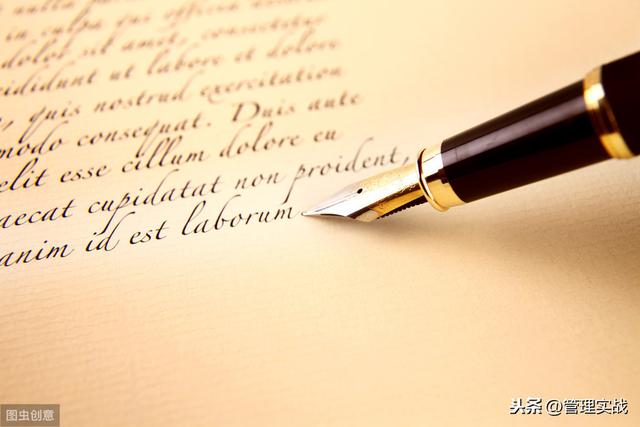 in culpa qui officia deserunt
dolor sit amet, consectetur
cididunt ut labore et dolore
, quis nostrud exercitation
modo consequat. Duis aute
elit esse cillum dolore eu
aecat cupidatat non proident,
anim id est laborum
图虫创意
头条 @管理实战